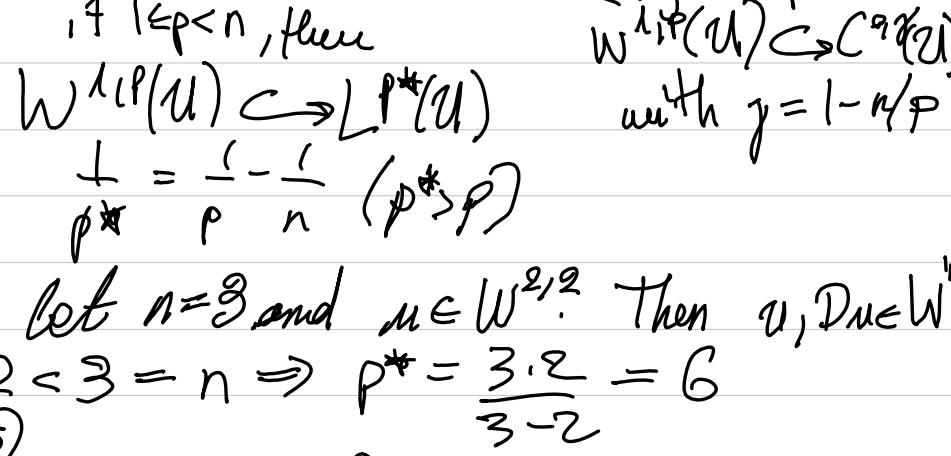 , if 1≤p<n, then
W^{1,p}(U) ↪ L^{p*}(U)
1/p* = 1/p - 1/n (p*>p)
W^{1,p}(U) ↪ C^{0,γ}(U
with γ = 1 - n/p
Let n=3 and u ∈ W^{2,2}. Then u, Du ∈ W
2 < 3 = n ⇒ p* = 3·2/3-2 = 6